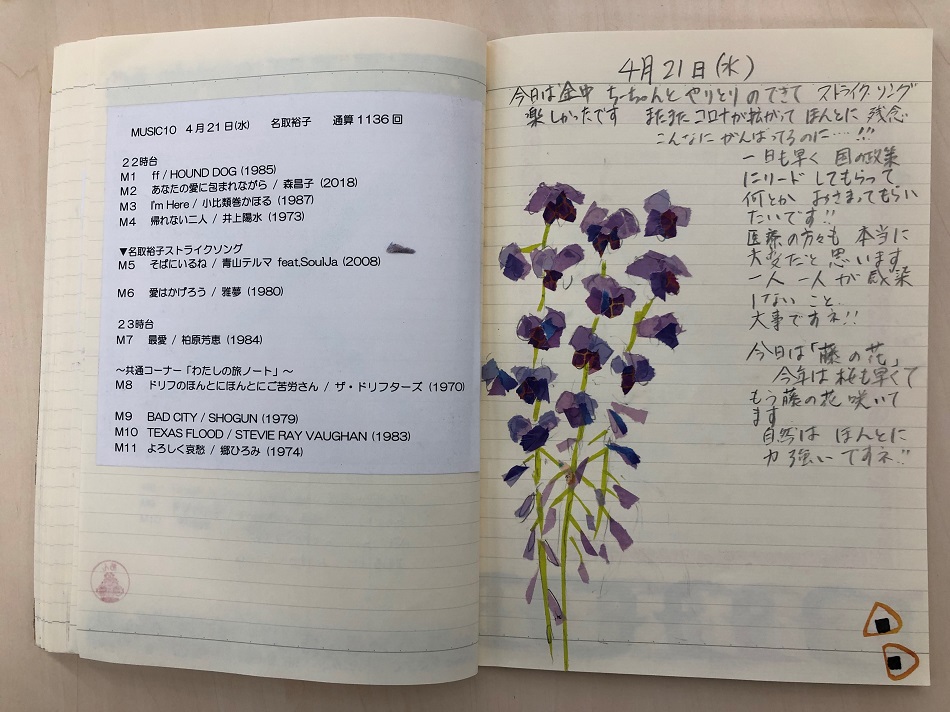 MUSIC10 4月21日(水) 名取裕子 通算1136回
22時台
M1 ff / HOUND DOG (1985)
M2 あなたの愛に包まれながら / 森昌子 (2018)
M3 I'm Here / 小比類巻かほる (1987)
M4 帰れない二人 / 井上陽水 (1973)
▼名取裕子ストライクソング
M5 そばにいるね / 青山テルマ feat.SoulJa (2008)
M6 愛はかげろう / 雅夢 (1980)
23時台
M7 最愛 / 柏原芳恵 (1984)
～共通コーナー「わたしの旅ノート」～
M8 ドリフのほんとにほんとにご苦労さん / ザ・ドリフターズ (1970)
M9 BAD CITY / SHOGUN (1979)
M10 TEXAS FLOOD / STEVIE RAY VAUGHAN (1983)
M11 よろしく哀愁 / 郷ひろみ (1974)
4月21日(水)
今日は金中 ちーちゃんと やりとりのできて ストライク・ソング
楽しかったです またまたコロナが拡がって ほんとに 残念
こんなに がんばってるのに…!!
一日も早く 国の政策
にリード してもらって
何とか おさまってもらい
たいです!!
医療の方々も 本当に
大変だと 思います
一人一人が 感染
しない こと
大事ですネ!!
今日は「藤の花」
今年は 桜も早くて
もう藤の花 咲いて
ます
自然は ほんとに
力強い ですネ!!